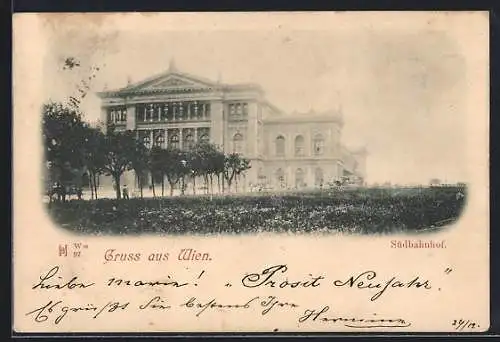 Südbahnhof.
W 97 Gruss aus Wien.
Liebe Marie! "Prosit Neujahr."
Es grüsst Sie bestens Ihre
Hermine 29/12.